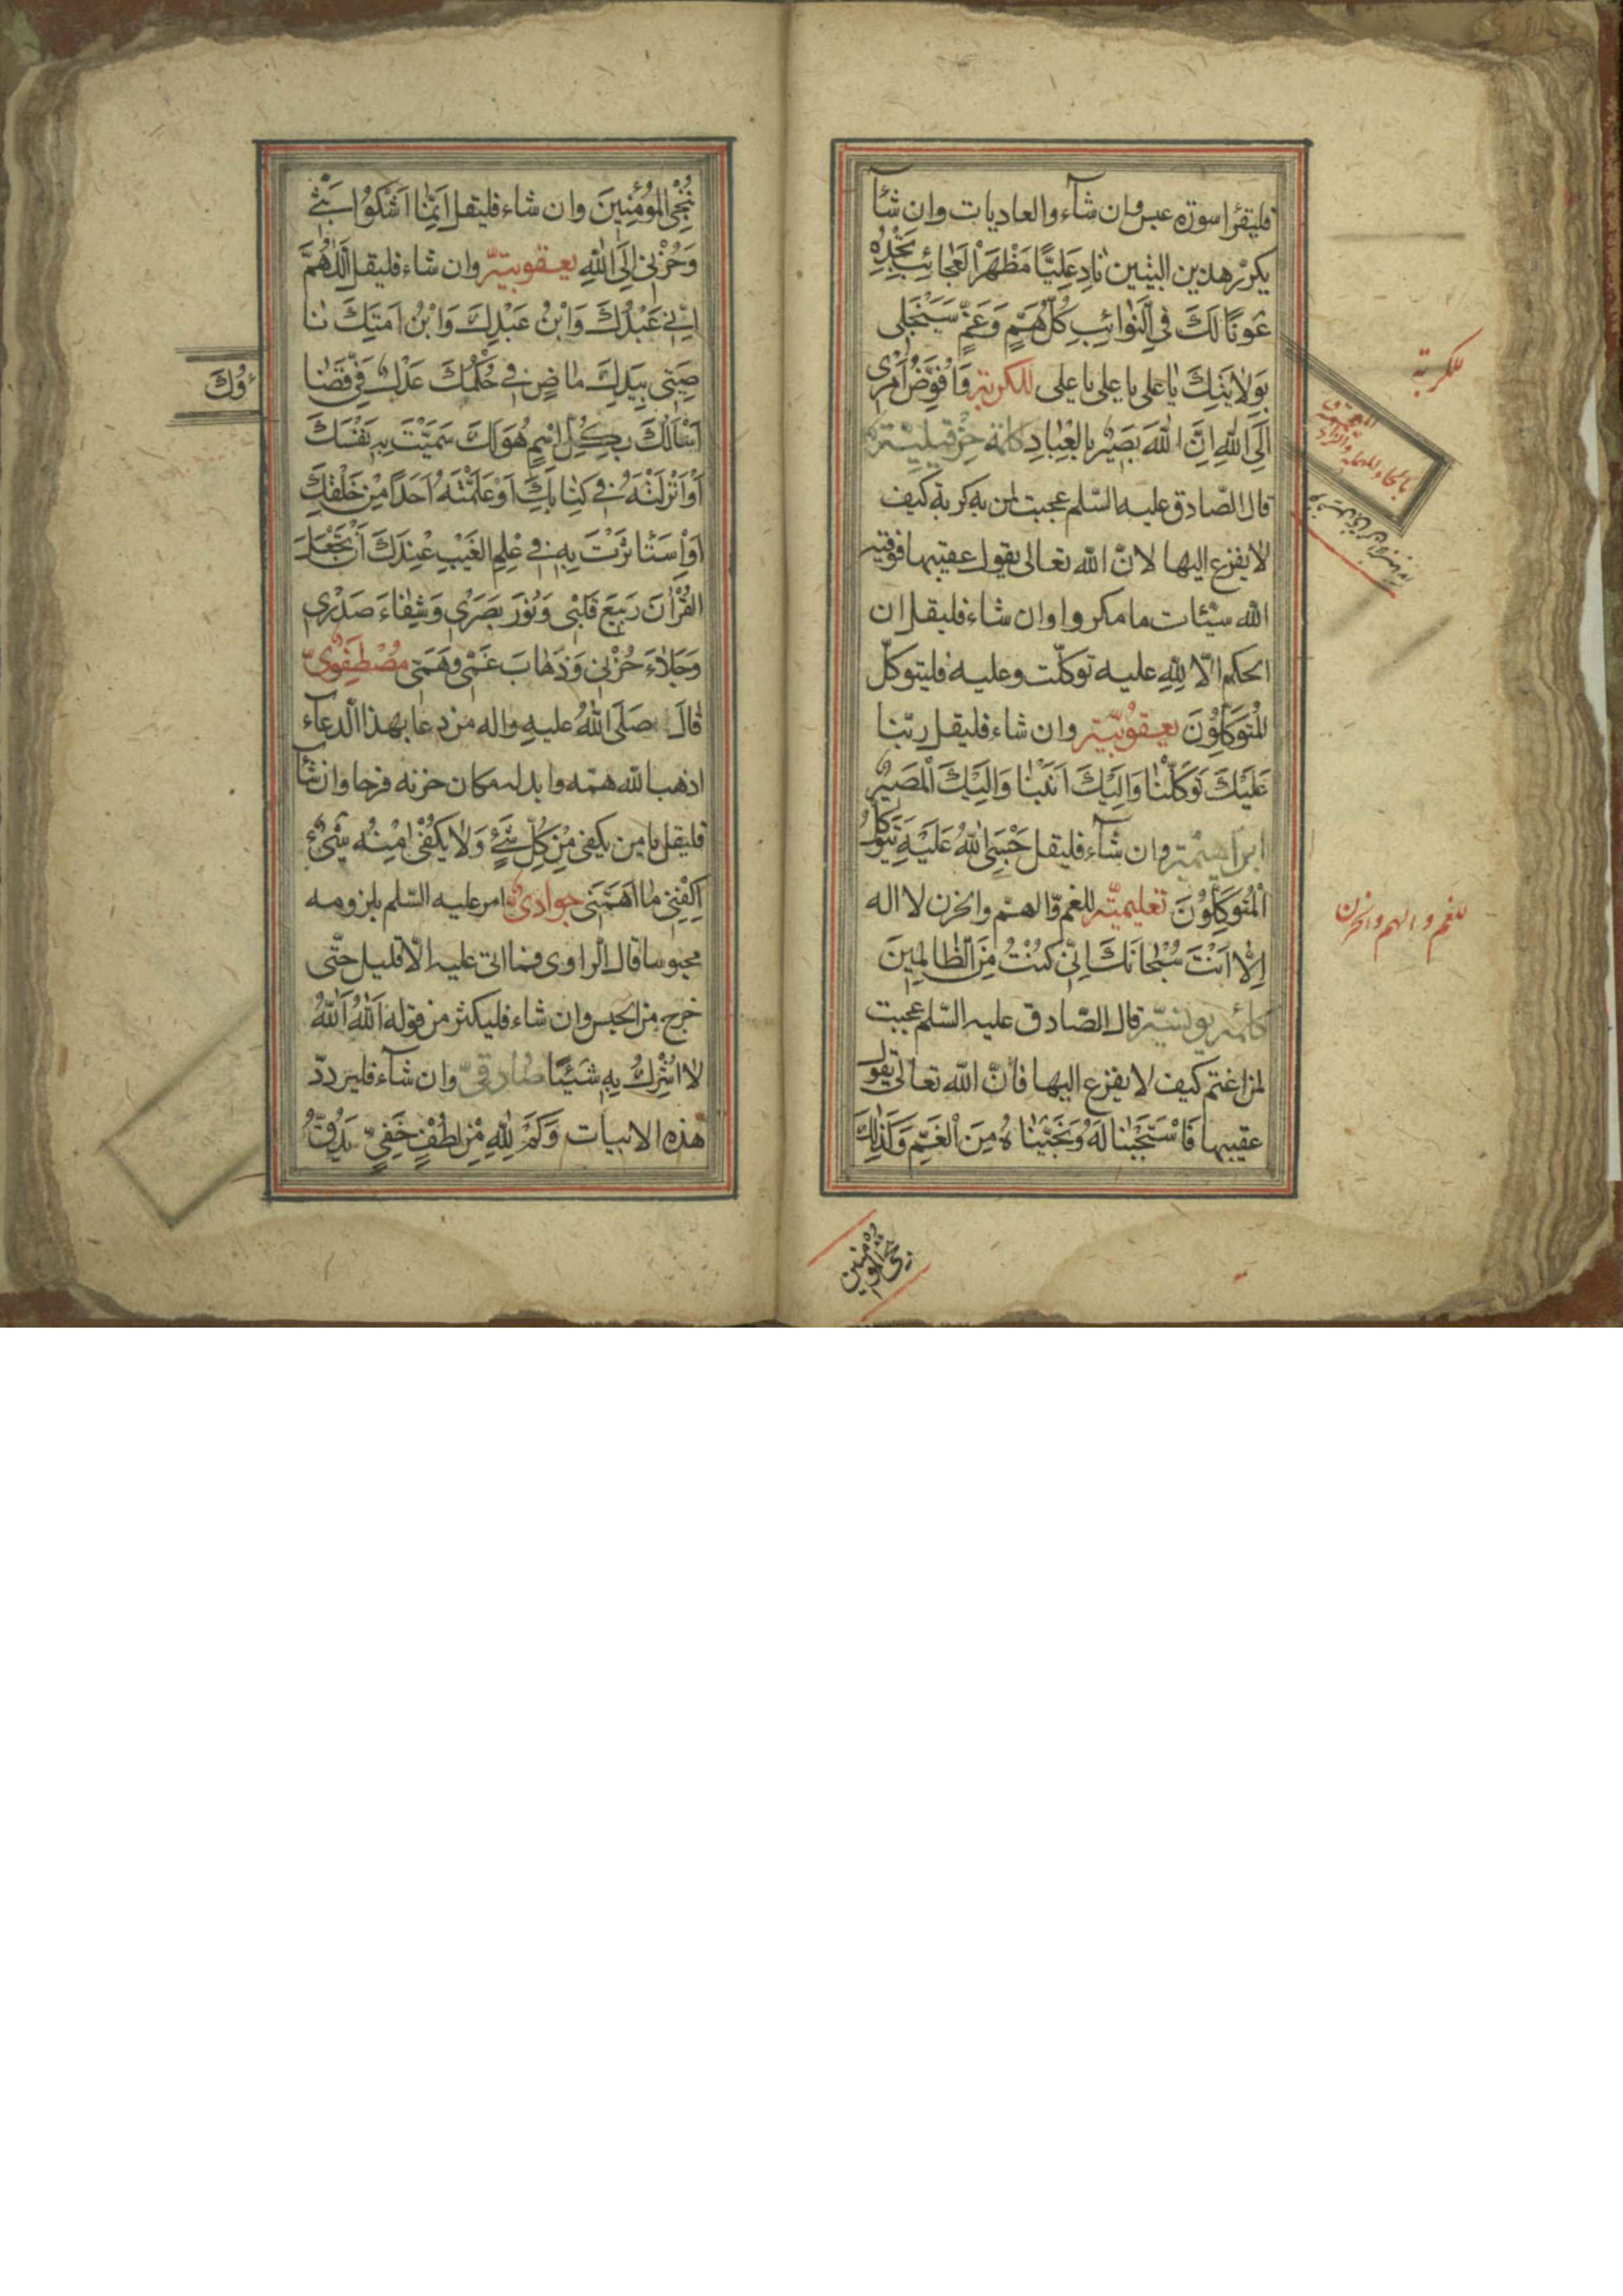 فليقرا سورة عبس وان شآء والعاديات وان شآء
يكرّر هذين البيتين نَادِ عَلِيًّا مَظْهَرَ الْعَجَائِبِ تَجِدْهُ
عَوْنًا لَكَ فِي النَّوَائِبِ كُلُّ هَمٍّ وَغَمٍّ سَيَنْجَلِي
بِوَلَايَتِكَ يَا عَلِي يَا عَلِي يَا عَلِي للكربة وَاُفَوِّضُ اَمْرِي
اِلَى اللّٰهِ اِنَّ اللّٰهَ بَصِيرٌ بِالْعِبَادِ كائة حزقيليّة
قال الصّادق عليه السّلم عجبت لمن به كربة كيف
لا يفزع اليها لانّ الله تعالى يقول عقيبها فوقيه
الله سيّئات ما مكروا وان شاء فليقل ان
الحكم الّا لِلّٰهِ عليه توكّلت وعليه فليتوكّل
الْمُتَوَكِّلُونَ يعقوبيّة وان شاء فليقل ربّنا
عَلَيْكَ تَوَكَّلْنَا وَاِلَيْكَ اَنَبْنَا وَاِلَيْكَ الْمَصِيرُ
ابراهيميّة وان شآء فليقل حَسْبِيَ اللّٰهُ عَلَيْهِ يَتَوَكَّلُ
الْمُتَوَكِّلُونَ تعليميّة للغمّ والهمّ والحزن لا اله
اِلَّا اَنْتَ سُبْحَانَكَ اِنِّي كُنْتُ مِنَ الظَّالِمِينَ
كائه يونسيّة قال الصّادق عليه السّلم عجبت
لمن اغتم كيف لا يفزع اليها فانّ الله تعالى يقول
عقيبها فَاسْتَجَبْنَا لَهُ وَنَجَّيْنَاهُ مِنَ الْغَمِّ وَكَذٰلِكَ
للكربة
للغم و الهم والحزن
نُنْجِي الْمُؤْمِنِينَ وان شاء فليقل اِنَّمَا اَشْكُوا بَثِّي
وَحُزْنِي اِلَى اللّٰهِ يعقوبيّة وان شاء فليقل اَللّٰهُمَّ
اِنِّي عَبْدُكَ وَابْنُ عَبْدِكَ وَابْنُ اَمَتِكَ نَا
صِيَتِي بِيَدِكَ مَاضٍ فِيَّ حُكْمُكَ عَدْلٌ فِيَّ قَضَا
ؤُكَ
اَسْاَلُكَ بِكُلِّ اسْمٍ هُوَ لَكَ سَمَّيْتَ بِهِ نَفْسَكَ
اَوْ اَنْزَلْتَهُ فِي كِتَابِكَ اَوْ عَلَّمْتَهُ اَحَدًا مِنْ خَلْقِكَ
اَوِ اسْتَاثَرْتَ بِهِ فِي عِلْمِ الْغَيْبِ عِنْدَكَ اَنْ تَجْعَلَ
الْقُرْاٰنَ رَبِيعَ قَلْبِي وَنُورَ بَصَرِي وَشِفَاءَ صَدْرِي
وَجَلَاءَ حُزْنِي وَذَهَابَ غَمِّي وَهَمِّي مُصْطَفَوِيّ
قال صَلَّى اللّٰهُ عليه واله من دعا بهذا الدعآء
اذهب الله همّه وابدله مكان حزنه فرحا وان شآء
فليقل يا من يكفي مِنْ كُلِّ شَيْءٍ وَلَا يَكْفِي مِنْهُ شَيْءٌ
اِكْفِنِي مَا اَهَمَّنِي جواديّ امر عليه السّلم بلزومه
محبوسا قال الراوي فما اتى عليه الّا قليل حتّى
خرج من الحبس وان شاء فليكثر من قوله اَللّٰهُ اَللّٰهُ
لَا اُشْرِكُ بِهِ شَيْئًا صادقيّ وان شآء فليردّد
هذه الابيات وَكَمْ لِلّٰهِ مِنْ لُطْفٍ خَفِيٍّ يَدُقُّ
نجي المؤمنين